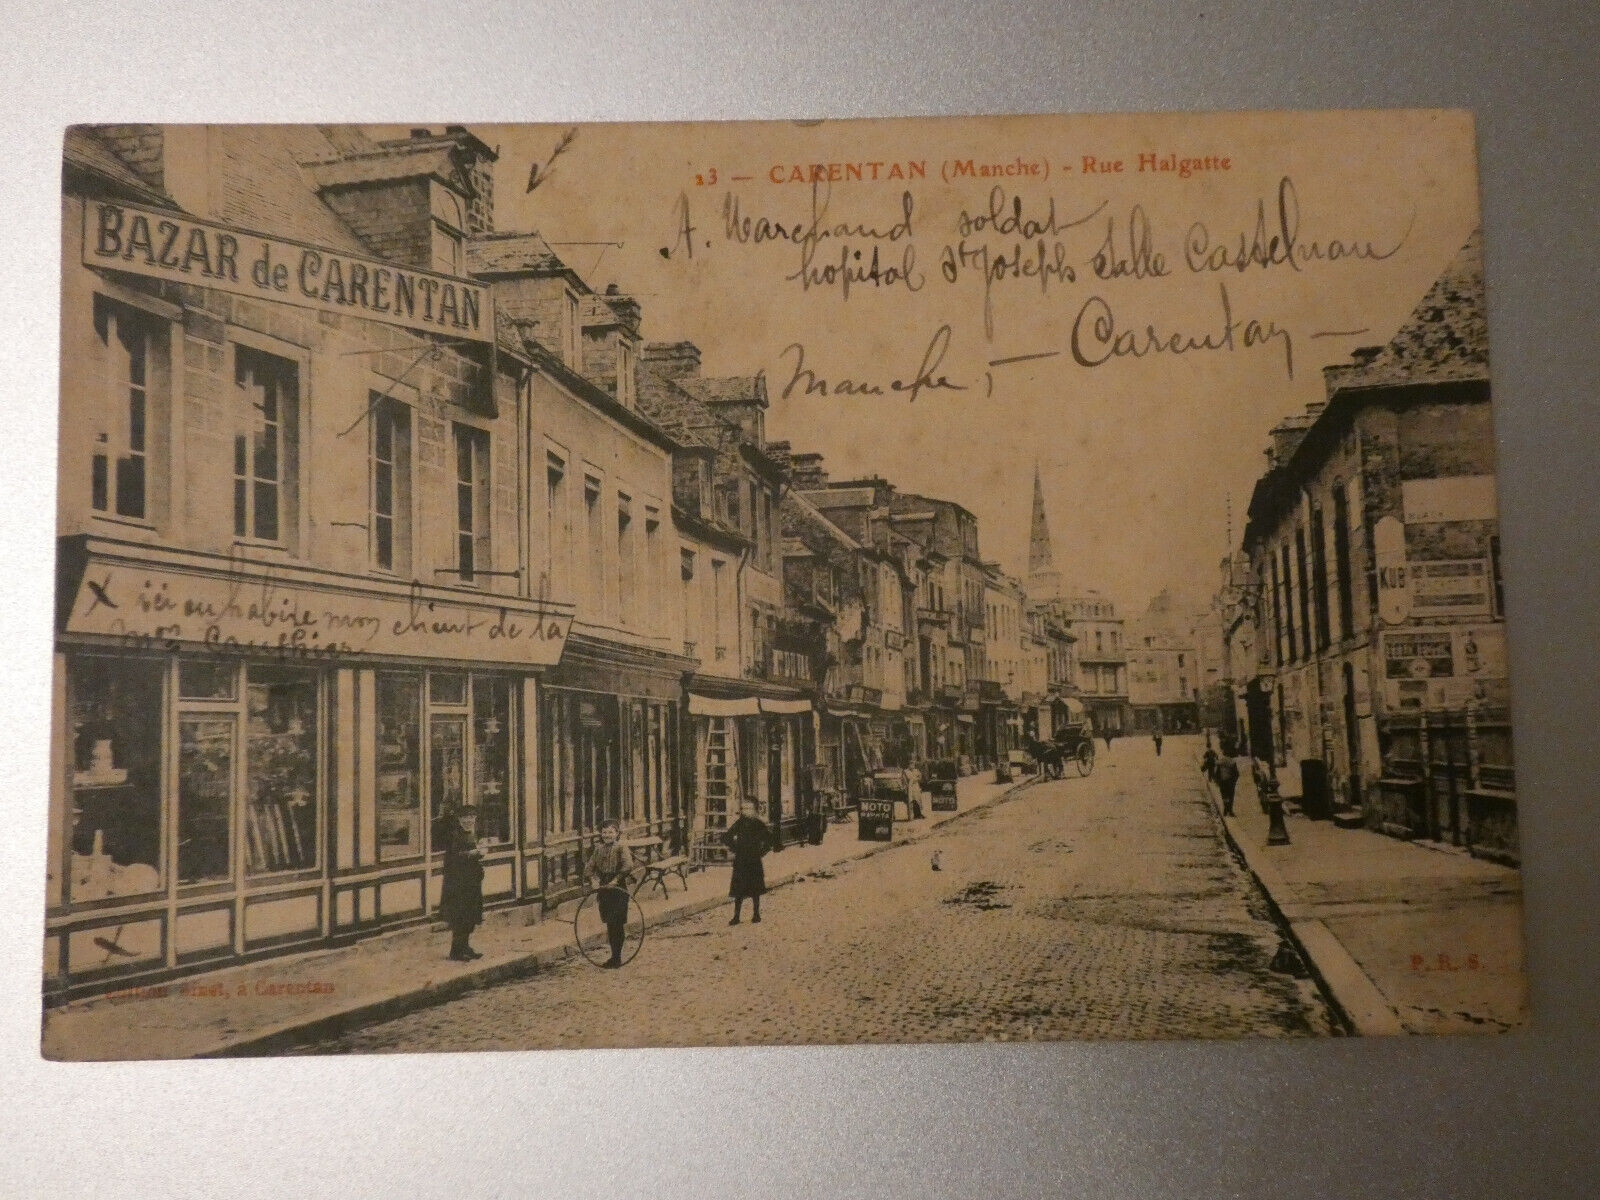 23 — CARENTAN (Manche) - Rue Halgatte
A. Marchand soldat
hopital St Joseph Salle Castelnau
Manche, — Carentan —
BAZAR de CARENTAN
X ici ou habite mon client de la
Mon Gauthier
KUB
MOTO
MOTO
à Carentan
P. R. S.